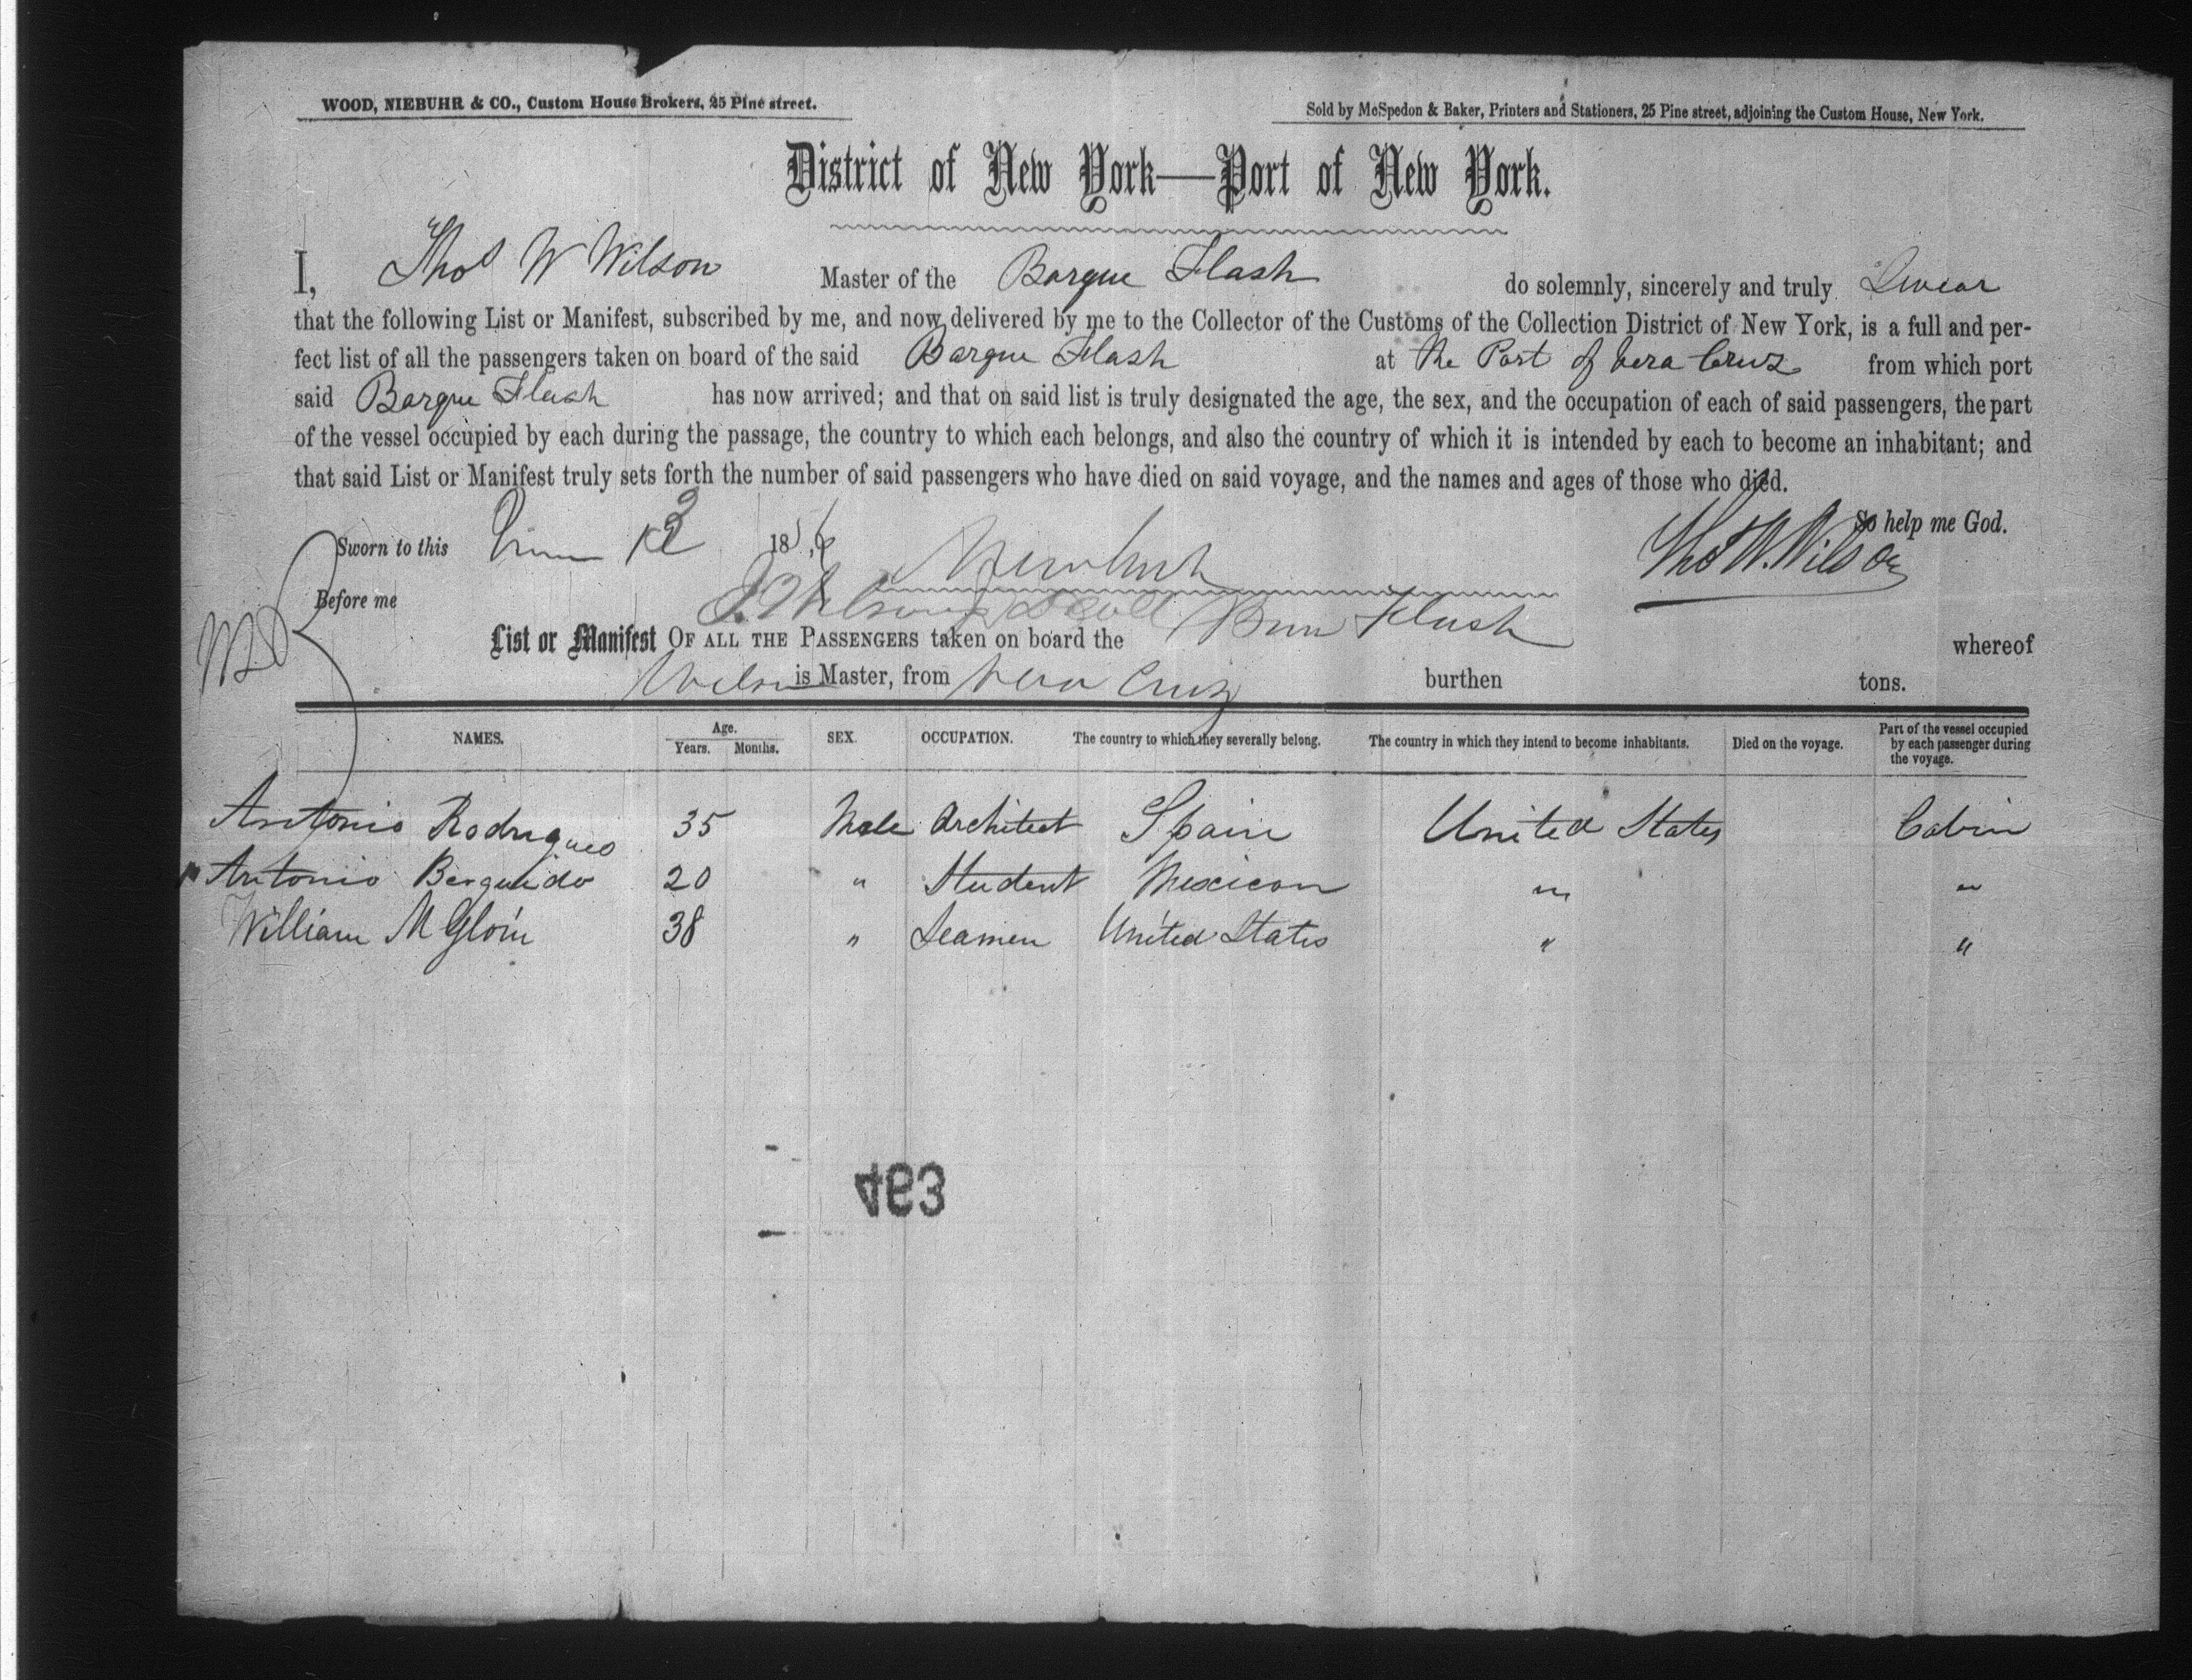 WOOD, NIEBUHR & CO., Custom House Brokers, 25 Pine street.
Sold by McSpedon & Baker, Printers and Stationers, 25 Pine street, adjoining the Custom House, New York.
District of New York—Port of New York.
I, Thos W Wilson Master of the Barque Flash do solemnly, sincerely and truly Swear
that the following List or Manifest, subscribed by me, and now delivered by me to the Collector of the Customs of the Collection District of New York, is a full and per-
fect list of all the passengers taken on board of the said Barque Flash at the Port of Vera Cruz from which port
said Barque Flash has now arrived; and that on said list is truly designated the age, the sex, and the occupation of each of said passengers, the part
of the vessel occupied by each during the passage, the country to which each belongs, and also the country of which it is intended by each to become an inhabitant; and
that said List or Manifest truly sets forth the number of said passengers who have died on said voyage, and the names and ages of those who died.
So help me God.
Sworn to this 1856 Thos W. Wilson
Before me
List or Manifest OF ALL THE PASSENGERS taken on board the Flash whereof
Wilson is Master, from Vera Cruz burthen tons.
NAMES. Age. Years. Months. SEX. OCCUPATION. The country to which they severally belong. The country in which they intend to become inhabitants. Died on the voyage. Part of the vessel occupied by each passenger during the voyage.
Antonio Rodrigues 35 Male Architect Spain United States Cabin
Antonio 20 " Student Mexican " "
William M Gloin 38 " Seamen United States " "
463